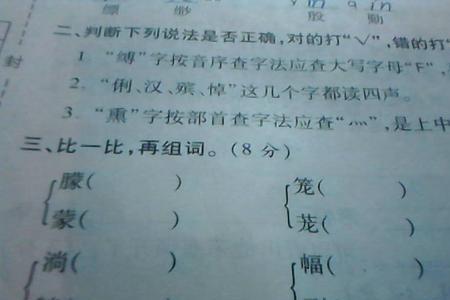 缥 缈 殷 勤
二、判断下列说法是否正确,对的打“√”,错的打“
1. “缚”字按音序查字法应查大写字母“F”,
封
2. “俐、汉、殡、悼”这几个字都读四声。
3. “熏”字按部首查字法应查“灬”,是上中
三、比一比,再组词。(8 分)
朦( ) 笼( )
蒙( ) 茏( )
淌( ) 幅( )